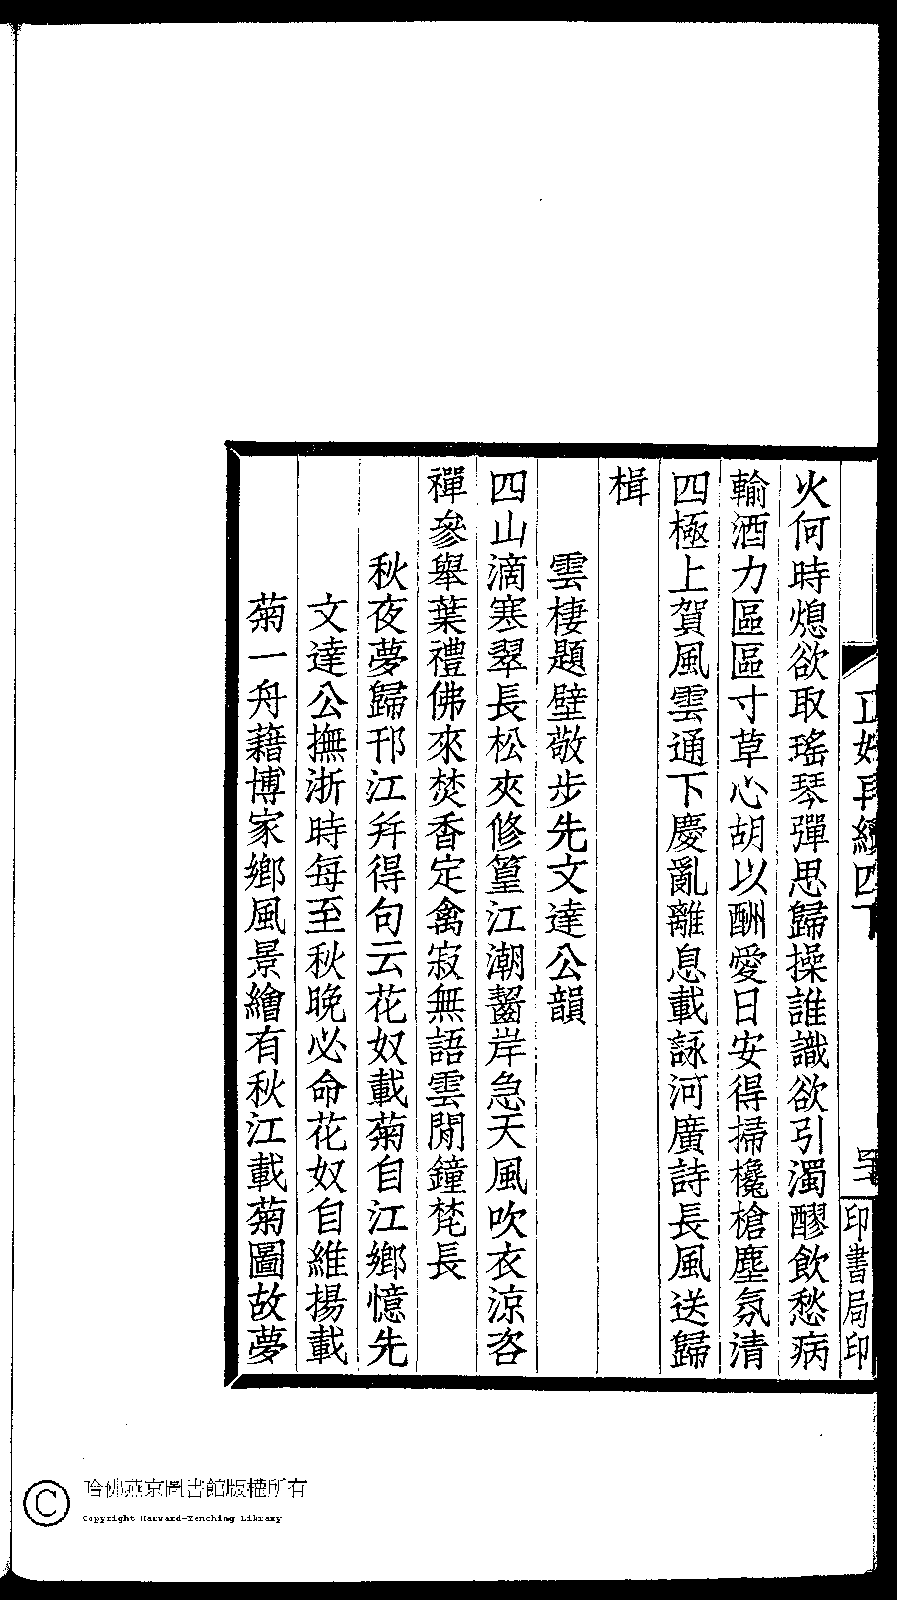 火何時熄欲取瑤琴彈思歸操誰識欲引濁醪飲愁病
輸酒力區區寸草心胡以酬愛日安得掃欃槍塵氛清
四極上賀風雲通下慶亂離息載詠河廣詩長風送歸
楫
雲棲題壁敬步先文達公韻
四山滴寒翠長松夾修篁江潮齧岸急天風吹衣涼咨
禪參舉葉禮佛來焚香定禽寂無語雲閒鐘梵長
秋夜夢歸邗江幷得句云花奴載菊自江鄉憶先
文達公撫浙時每至秋晚必命花奴自維揚載
菊一舟藉博家鄉風景繪有秋江載菊圖故夢
再續四下
印書局印
哈佛燕京圖書館版權所有
Copyright Harvard-Yenching Library